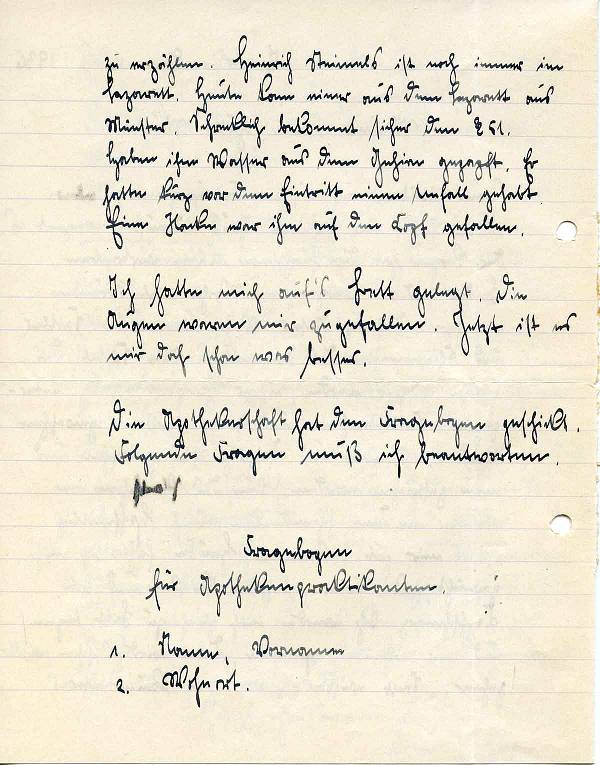 zu erzählen. Heinrich Steinels ist noch immer im
Lazarett. Heute kam einer aus dem Lazarett aus
Münster. Schrecklich bekommt sicher den § 51.
Haben ihm Wasser aus dem gezapft. Er
hatte kurz vor dem Eintritt einen Unfall gehabt.
Eine Hacke war ihm auf den Kopf gefallen.
Ich hatte mich auf's Brett gelegt. Die
Augen waren mir zugefallen. Jetzt ist es
mir doch schon was besser.
Die Apothekerschaft hat den Fragebogen geschickt.
Folgende Fragen muß ich beantworten.
Fragebogen
für Apothekenpraktikanten.
1. Name, Vorname
2. Wohnort.